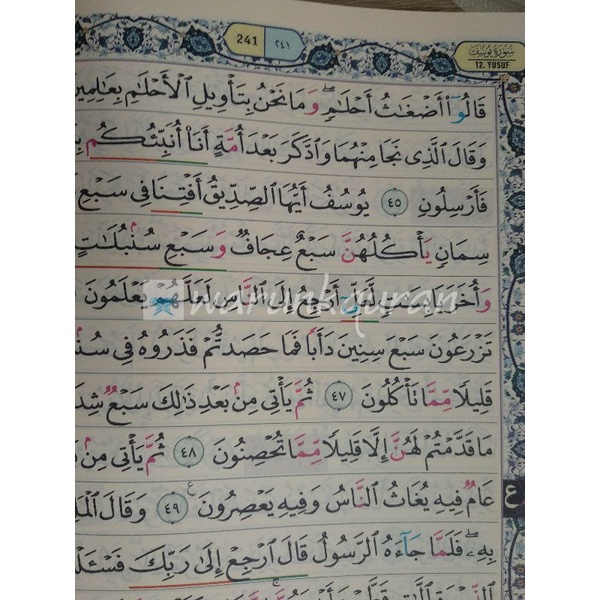 241 ٢٤١
سُورَةُ يُوسُفَ
12. YUSUF
قَالُوٓا۟ أَضْغَٰثُ أَحْلَٰمٍ ۖ وَمَا نَحْنُ بِتَأْوِيلِ ٱلْأَحْلَٰمِ بِعَٰلِمِينَ
وَقَالَ ٱلَّذِى نَجَا مِنْهُمَا وَٱدَّكَرَ بَعْدَ أُمَّةٍ أَنَا۠ أُنَبِّئُكُم
فَأَرْسِلُونِ ٤٥ يُوسُفُ أَيُّهَا ٱلصِّدِّيقُ أَفْتِنَا فِى سَبْعِ
سِمَانٍ يَأْكُلُهُنَّ سَبْعٌ عِجَافٌ وَسَبْعِ سُنۢبُلَٰتٍ
وَأُخَرَ يَابِسَٰتٍ لَّعَلِّىٓ أَرْجِعُ إِلَى ٱلنَّاسِ لَعَلَّهُمْ يَعْلَمُونَ
warunkquran
تَزْرَعُونَ سَبْعَ سِنِينَ دَأَبًا فَمَا حَصَدتُّمْ فَذَرُوهُ فِى
قَلِيلًا مِّمَّا تَأْكُلُونَ ٤٧ ثُمَّ يَأْتِى مِنۢ بَعْدِ ذَٰلِكَ سَبْعٌ
مَا قَدَّمْتُمْ لَهُنَّ إِلَّا قَلِيلًا مِّمَّا تُحْصِنُونَ ٤٨ ثُمَّ يَأْتِى مِنۢ
عَامٌ فِيهِ يُغَاثُ ٱلنَّاسُ وَفِيهِ يَعْصِرُونَ ٤٩ وَقَالَ
ع
بِهِۦ ۖ فَلَمَّا جَآءَهُ ٱلرَّسُولُ قَالَ ٱرْجِعْ إِلَىٰ رَبِّكَ